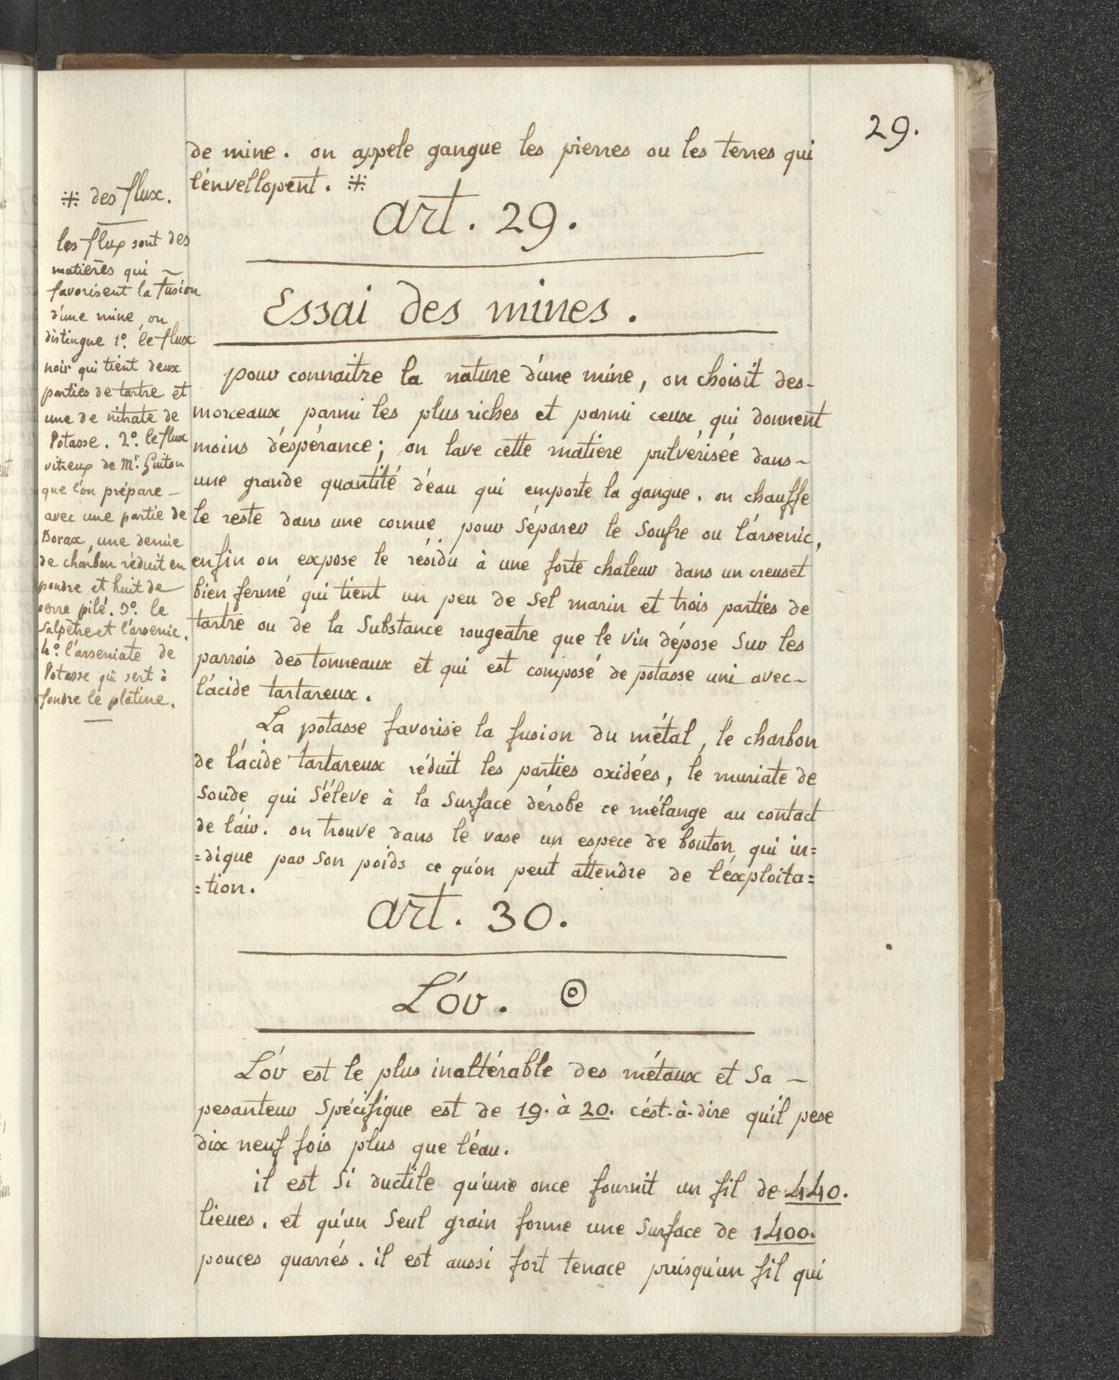 29.
de mine. on appele gangue les pierres ou les terres qui
l'envellopent. ⁜
art. 29.
Essai des mines.
pour connaitre la nature d'une mine, on choisit des-
morceaux parmi les plus riches et parmi ceux qui donnent
moins d'éspérance; on lave cette matiere pulvérisée dans-
une grande quantité d'éau qui emporte la gangue. on chauffe
le reste dans une cornue pour Séparer le Soufre ou l'arsenic,
enfin on expose le résidu à une forte chaleur dans un creuset
bien fermé qui tient un peu de Sel marin et trois parties de
tartre ou de la Substance rougeatre que le vin dépose Sur les
parrois des tonneaux et qui est composé de potasse uni avec-
l'ácide tartareux.
La potasse favorise la fusion du métal, le charbon
de l'ácide tartareux réduit les parties oxidées, le muriate de
Soude qui S'éleve à la Surface dérobe ce mélange au contact
de l'áir. on trouve dans le vase un espece de bouton qui in=
=dique par Son poids ce qu'on peut attendre de l'éxploita=
=tion.
art. 30.
L'ór. ☉
L'ór est le plus inaltérable des métaux et Sa -
pesanteur Spécifique est de 19. à 20. c'ést-à-dire qu'il pese
dix neuf fois plus que l'éau.
il est Si ductile qu'une once fournit un fil de 440.
lieues. et qu'un Seul grain forme une Surface de 1400.
pouces quarrés. il est aussi fort tenace puisqu'un fil qui
⁜ des flux.
les flux sont des
matieres qui -
favorisent la fusion
d'une mine, on
distingue 1º. le flux
noir qui tient deux
parties de tartre et
une de nitrate de
Potasse. 2º. le flux
vitreux de Mr. Guiton
que l'on prépare -
avec une partie de
Borax, une demie
de charbon réduit en
poudre et huit de
verre pilé. 3º. le
Salpêtre et l'arsenic.
4º. l'arseniate de
Potasse qui sert à
fondre le platine.